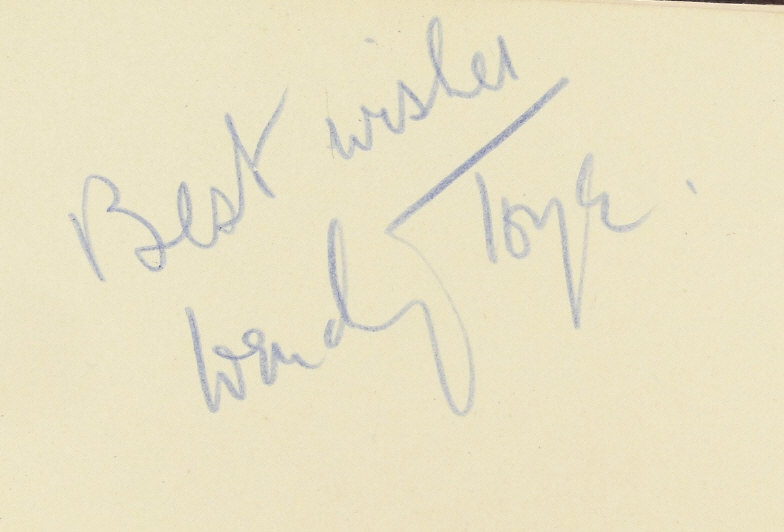 Best wishes
Wendy Toye.